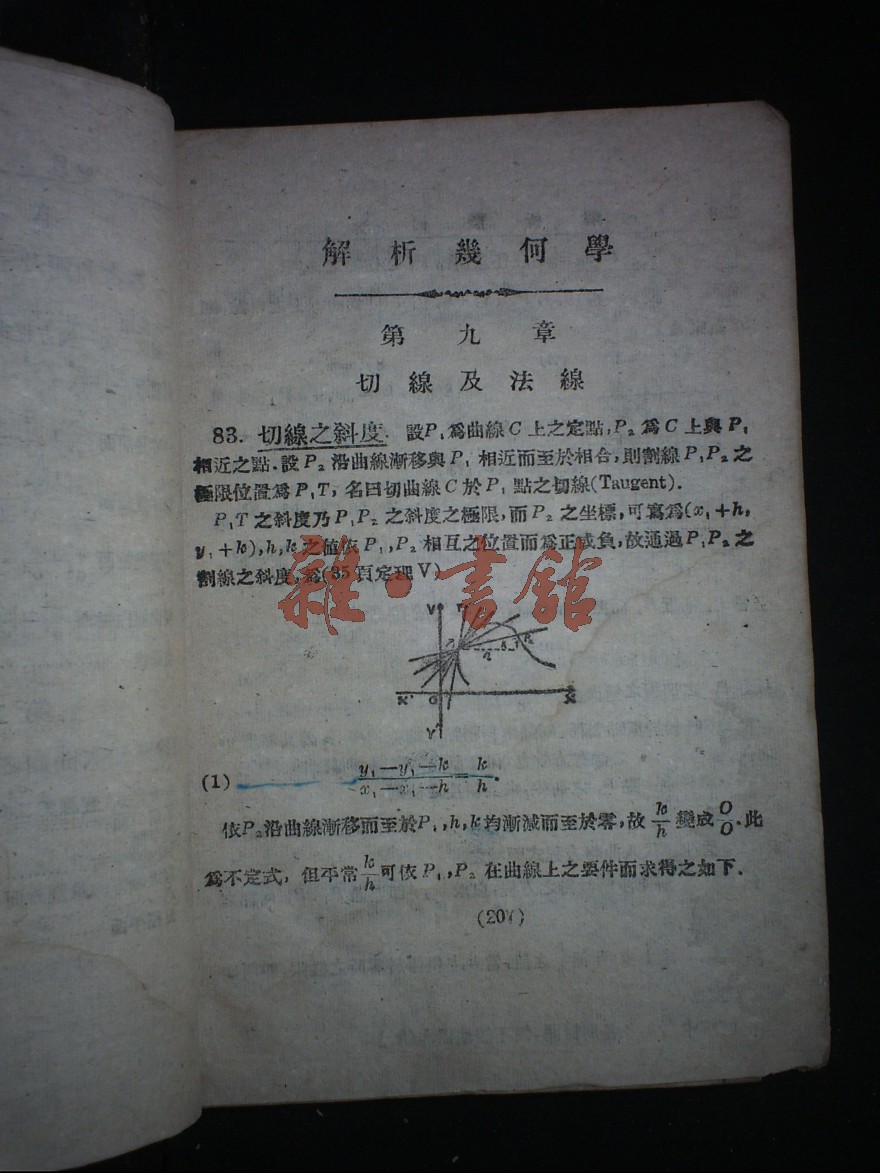 解析幾何學
第九章
切線及法線
83. 切線之斜度. 設P₁爲曲線C上之定點,P₂爲C上與P₁
相近之點.設P₂沿曲線漸移與P₁相近而至於相合,則割線P₁P₂之
極限位置爲P₁T,名曰切曲線C於P₁點之切線(Taugent).
P₁T之斜度乃P₁P₂之斜度之極限,而P₂之坐標,可寫爲(x₁+h,
y₁+k),h,k之値依P₁,P₂相互之位置而爲正或負,故通過P₁P₂之
割線之斜度,爲(35頁定理V)
雜·書舘
X' O X
Y'
(1) (y₁—y₁—k)/(x₁—x₁—h)=k/h.
依P₂沿曲線漸移而至於P₁,h,k均漸減而至於零,故 k/h 變成 0/0.此
爲不定式,但平常 k/h 可依P₁,P₂在曲線上之要件而求得之如下.
(207)